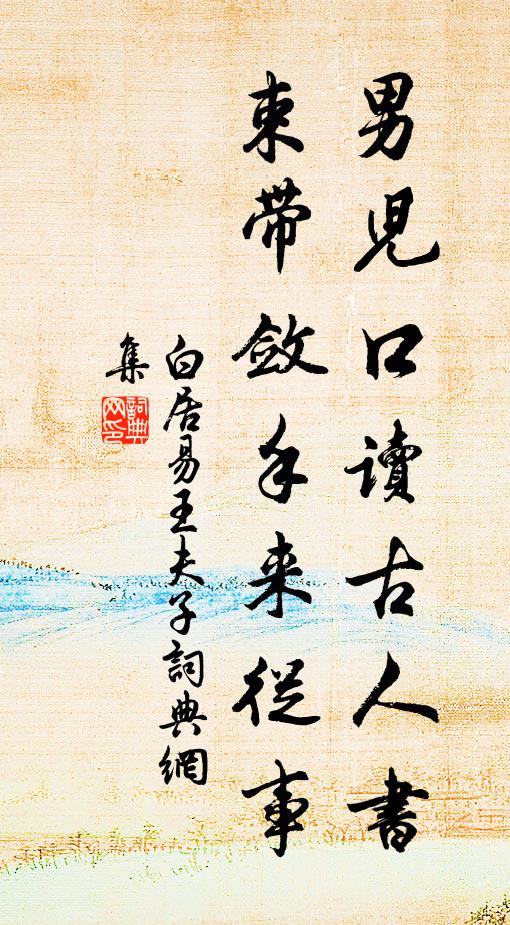 男兒口讀古人書
束帶斂手來從事
白居易王夫子詞典網
集
詞典
网印